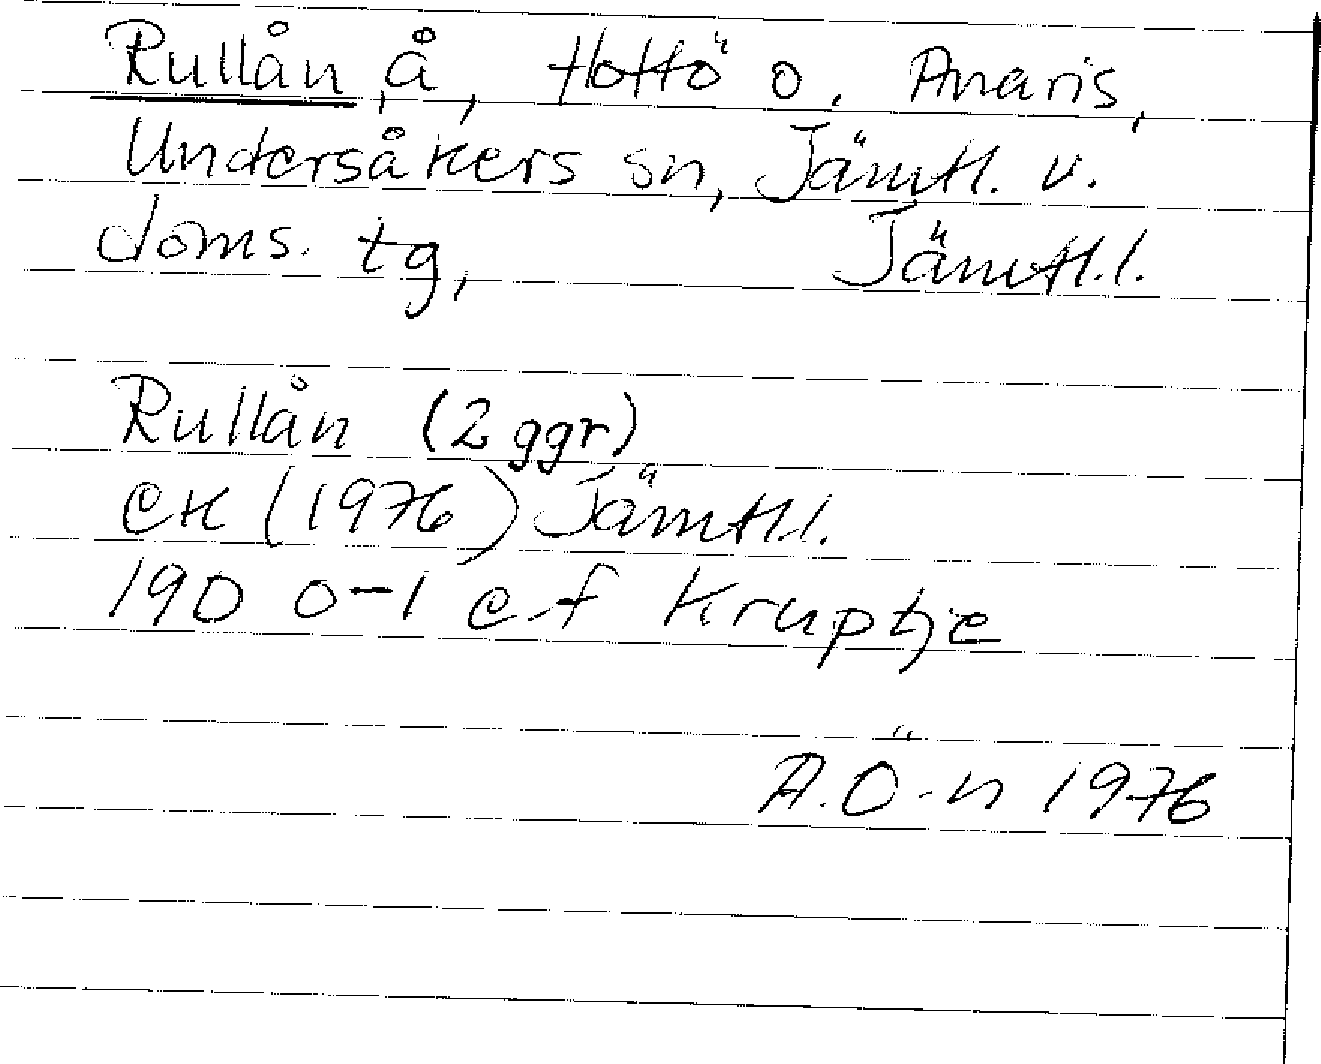 Rullån, å, Hottö o. Anaris,
Undersåkers sn, Jämtl. v.
doms. tg, Jämtl.l.
Rullån (2 ggr)
ek (1976) Jämtl.l.
190 0-1 e-f Kruptje
A.Ö-n 1976